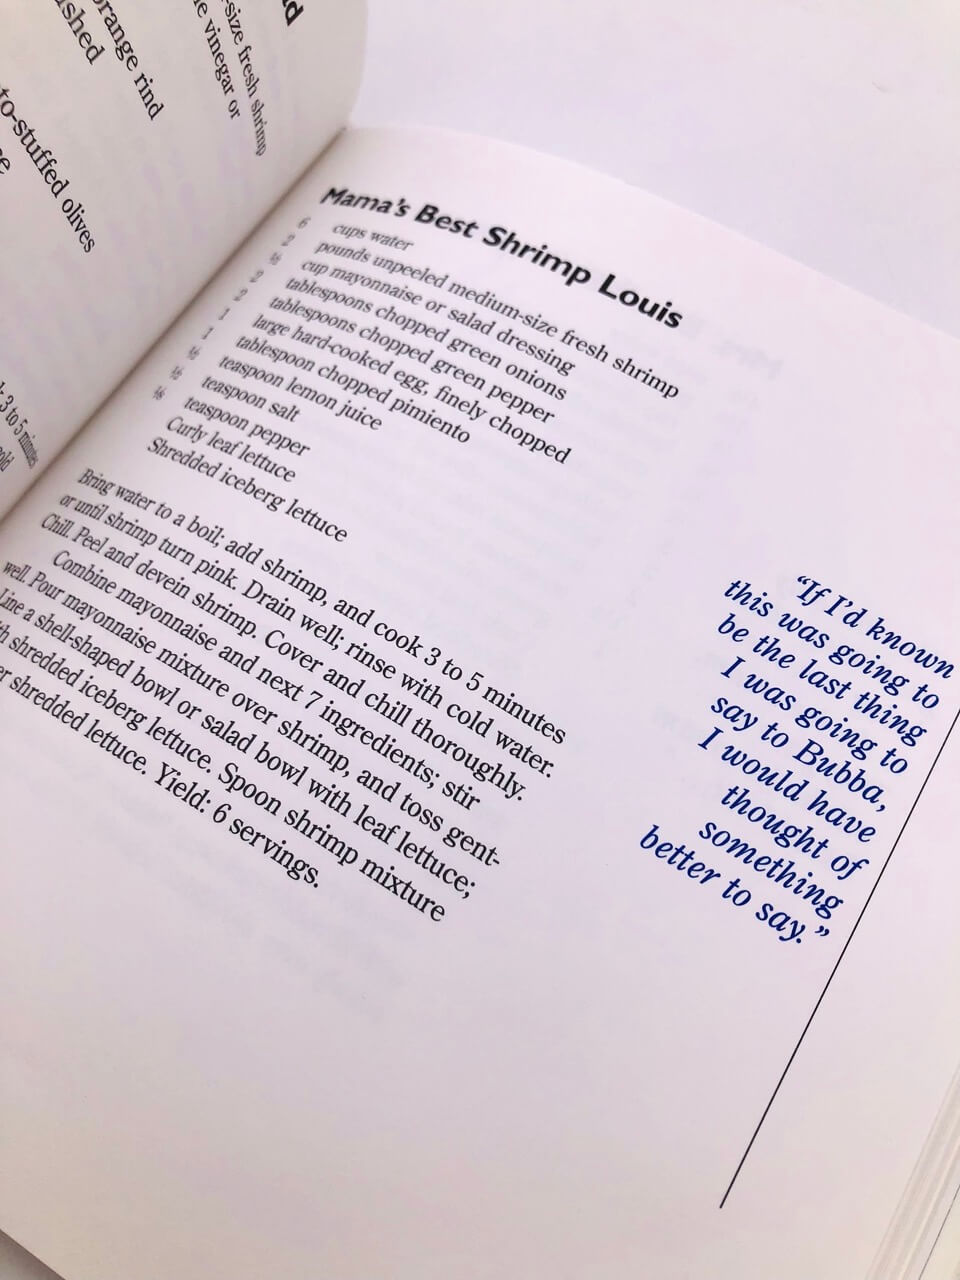 -size fresh shrimp
vinegar or
orange rind
to-stuffed olives
3 to 5 minutes
Mama's Best Shrimp Louis
6 cups water
2 pounds unpeeled medium-size fresh shrimp
½ cup mayonnaise or salad dressing
2 tablespoons chopped green onions
2 tablespoons chopped green pepper
1 large hard-cooked egg, finely chopped
1 tablespoon chopped pimiento
½ teaspoon lemon juice
½ teaspoon salt
⅛ teaspoon pepper
Curly leaf lettuce
Shredded iceberg lettuce
Bring water to a boil; add shrimp, and cook 3 to 5 minutes
or until shrimp turn pink. Drain well; rinse with cold water.
Chill. Peel and devein shrimp. Cover and chill thoroughly.
Combine mayonnaise and next 7 ingredients; stir
well. Pour mayonnaise mixture over shrimp, and toss gent-
Line a shell-shaped bowl or salad bowl with leaf lettuce;
shredded iceberg lettuce. Spoon shrimp mixture
shredded lettuce. Yield: 6 servings.
“If I'd known
this was going to
be the last thing
I was going to
say to Bubba,
I would have
thought of
something
better to say.”